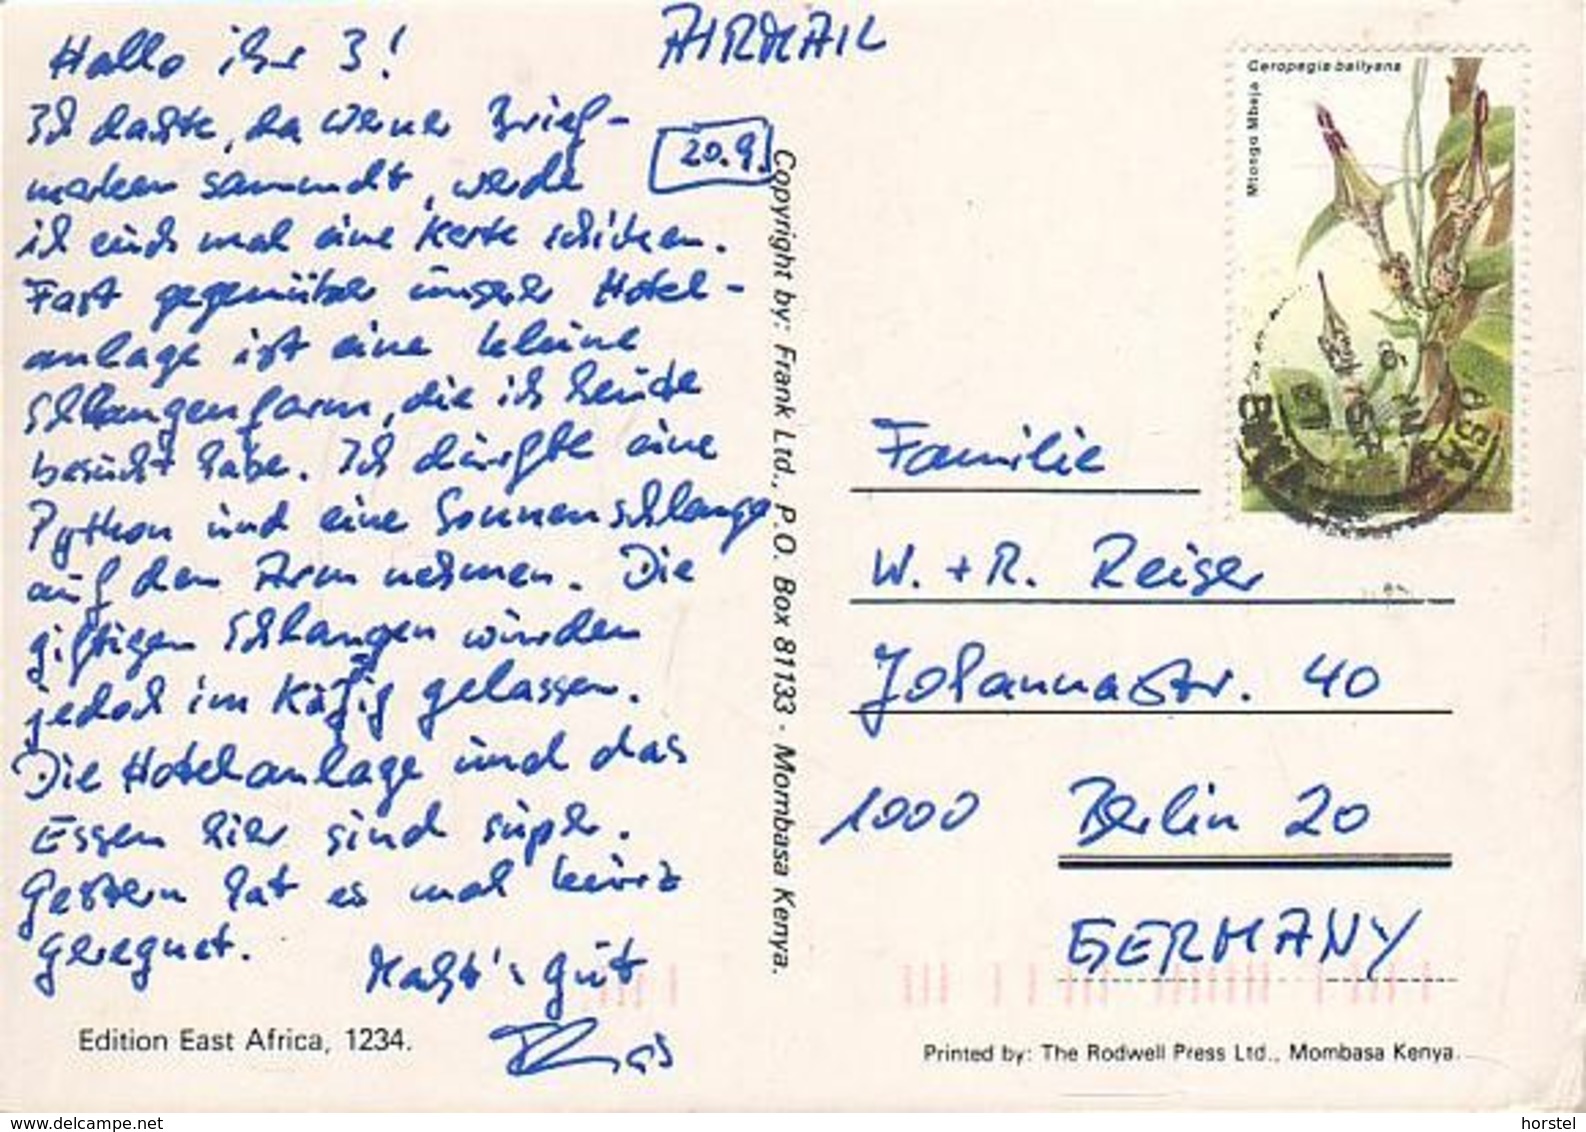 AIRMAIL
Hallo ihr 3!
20.9.
Ich dachte, da Werner Brief-
marken sammelt, werde
ich euch mal eine Karte schicken.
Fast gegenüber unserer Hotel-
anlage ist eine kleine
Schlangenfarm, die ich heute
besucht habe. Ich durfte eine
Python und eine Sonnenschlange
auf den Arm nehmen. Die
giftigen Schlangen wurden
jedoch im Käfig gelassen.
Die Hotelanlage und das
Essen hier sind super.
Gestern hat es mal kurz
geregnet.
Macht's gut
Edition East Africa, 1234.
Copyright by: Frank Ltd., P.O. Box 81133 - Mombasa Kenya.
Ceropegia ballyana
Mtonga Mbeja
Familie
W. + R. Reiser
Johannastr. 40
1000 Berlin 20
GERMANY
Printed by: The Rodwell Press Ltd., Mombasa Kenya.
delcampe.net
horstel